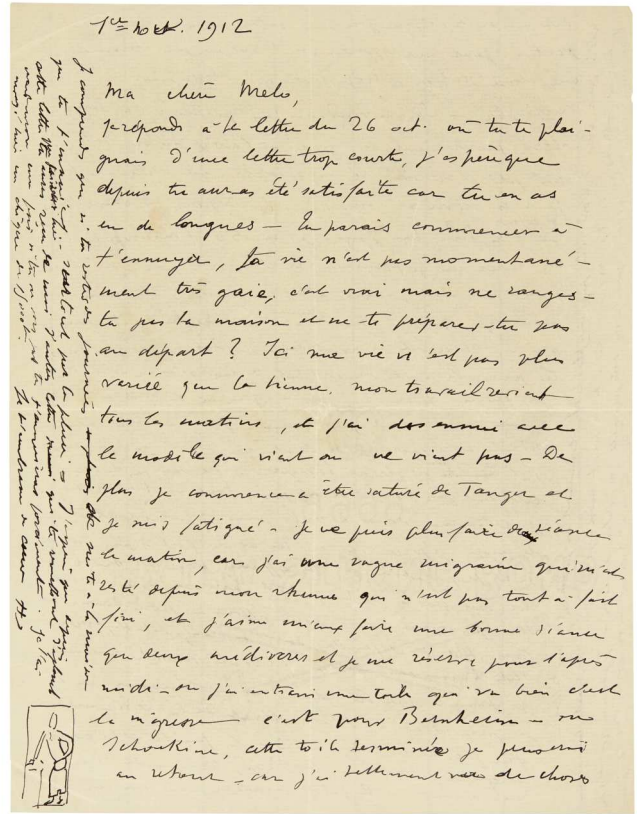 1er nov. 1912
Ma chère Melo,
Je réponds à ta lettre du 26 oct. où tu te plai-
gnais d'une lettre trop courte, j'espère que
depuis tu auras été satisfaite car tu en as
eu de longues — Tu parais commencer à
t'ennuyer, ta vie n'est pas momentané-
ment très gaie, c'est vrai mais ne ranges-
tu pas ta maison et ne te prépares-tu pas
au départ ? Ici ma vie n'est pas plus
variée que la tienne. mon travail revient
tous les matins, et j'ai des ennuis avec
le modèle qui vient ou ne vient pas — De
plus je commence à être saturé de Tanger et
je suis fatigué — je ne puis plus faire de séance
le matin, car j'ai une vague migraine qui m'est
resté depuis mon rhume qui n'est pas tout à fait
fini, et j'aime mieux faire une bonne séance
que deux médiocres et je me réserve pour l'après
midi — où j'ai en train une toile qui va bien c'est
la négresse c'est pour Bernheim — ou
Schoukine, cette toile terminée je penserai
au retour — car j'ai tellement de choses
Je comprends que si tu restes des journées de suite à la maison
que tu t'ennuies surtout par la pluie —
cette lettre tu auras reçu de moi